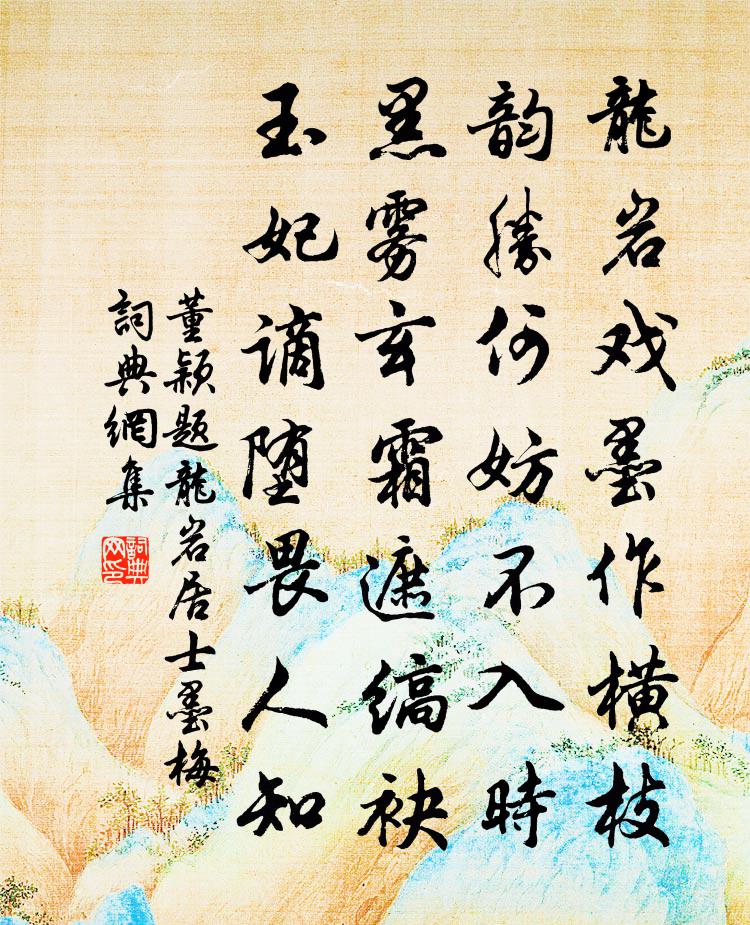 龍岩戏墨作橫枝
韵勝何妨不入時
黑雾玄霜遮缟袂
玉妃谪堕畏人知
董颖題龍岩居士墨梅
詞典網集
詞典网印